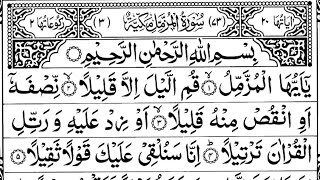 اٰیاتها ٢٠ (٤٣) سُوْرَةُ الْمُزَّمِّلِ مَكِّيَّةٌ (٣) رکوعاتها ٢
بِسْمِ اللّٰهِ الرَّحْمٰنِ الرَّحِيْمِ
يٰۤاَيُّهَا الْمُزَّمِّلُ ۙ﴿١﴾ قُمِ الَّيْلَ اِلَّا قَلِيْلًا ۙ﴿٢﴾ نِّصْفَهٗۤ
اَوِ انْقُصْ مِنْهُ قَلِيْلًا ۙ﴿٣﴾ اَوْ زِدْ عَلَيْهِ وَ رَتِّلِ
الْقُرْاٰنَ تَرْتِيْلًا ؕ﴿٤﴾ اِنَّا سَنُلْقِيْ عَلَيْكَ قَوْلًا ثَقِيْلًا ﴿٥﴾